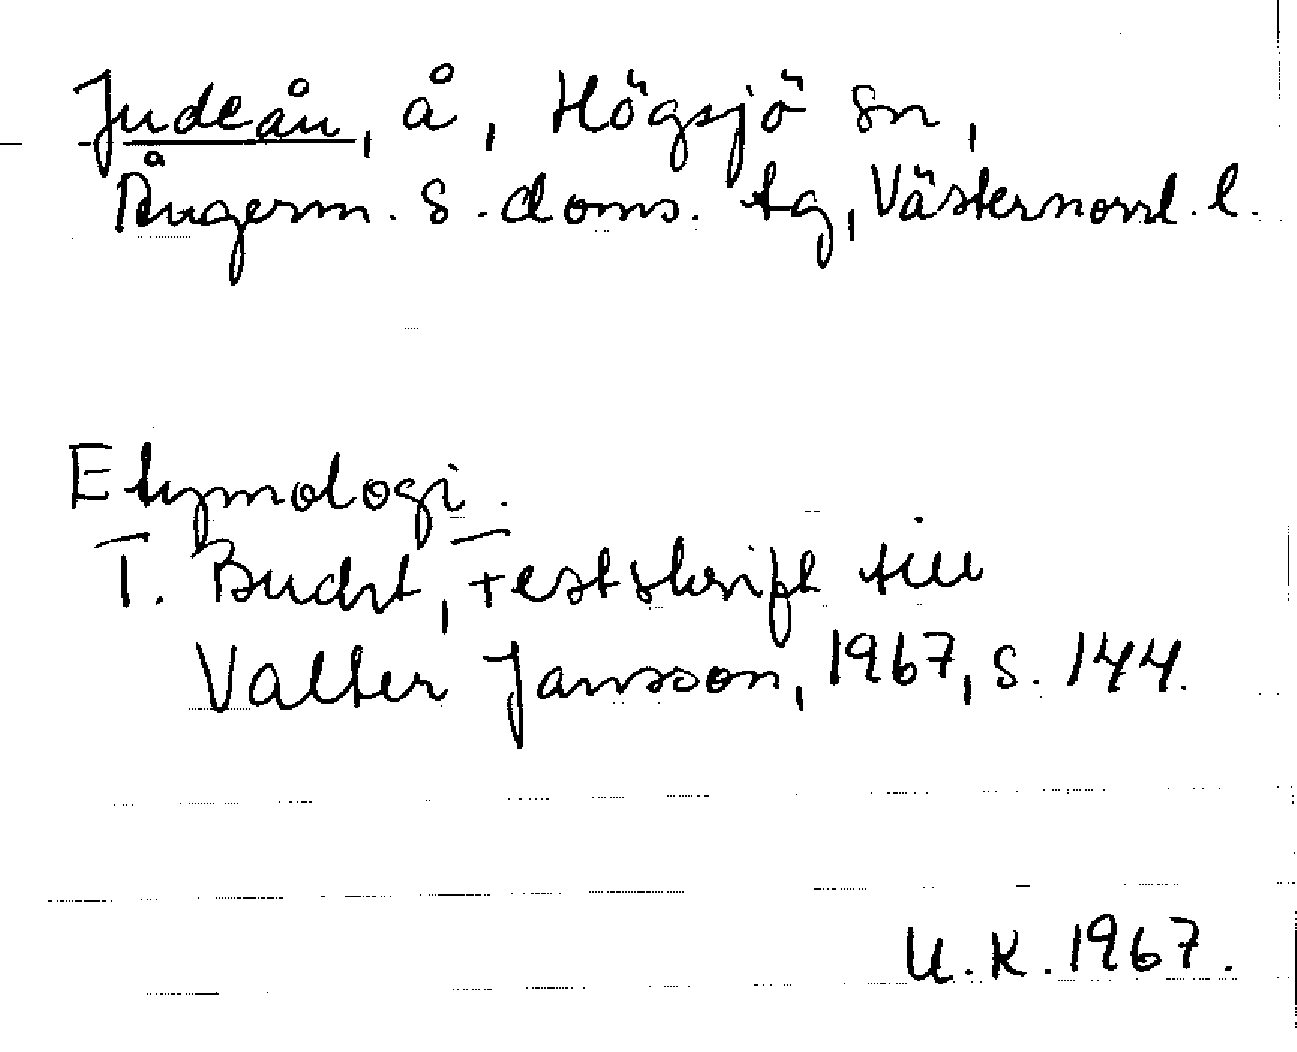 Judeån, å, Högsjö sn,
Ångerm. s. doms. tg, Västernorrl. l.
Etymologi.
T. Bucht, Festskrift till
Valter Jansson, 1967, s. 144.
U.K. 1967.